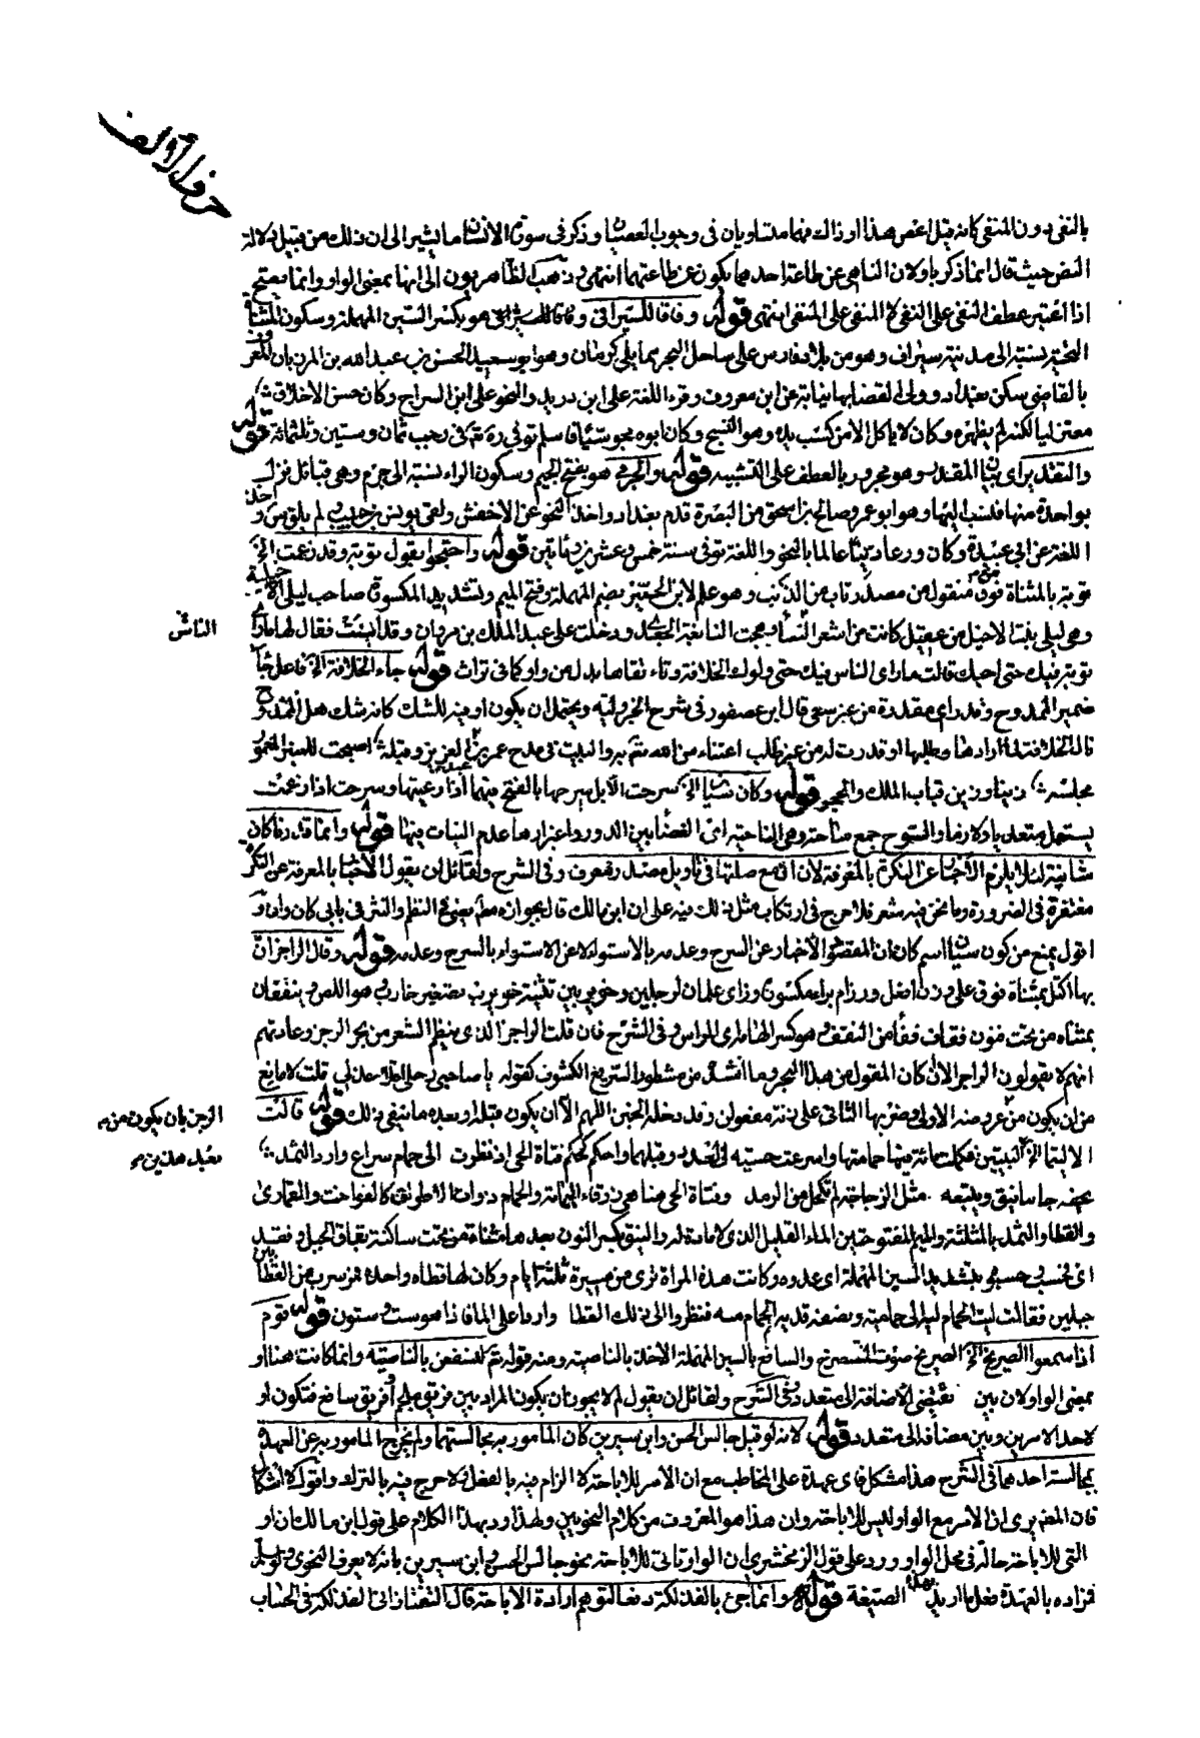 حرف الألف
بالنفي دون المنفي كانه قيل اعص هذا او ذاك فهما متساويان في وجوب العصيان وذكر في سورة الانسان ما يشير الى ان ذلك من قبيل دلالة
النص حيث قال انما ذكر باو لان الناهي عن طاعة احدهما يكون عن طاعتهما انتهى وذهب الظاهريون الى انها بمعنى الواو وانما يصح
اذا اعتبر عطف النفي على النفي لا المنفي على المنفي انتهى قوله وفاقا للسيرافي هو بكسر السين المهملة وسكون المثناة
التحتية نسبة الى مدينة سيراف وهو من بلاد فارس على ساحل البحر مما يلي كرمان وهو ابو سعيد الحسن بن عبد الله بن المرزبان المعروف
بالقاضي سكن بغداد وولي القضا بها نيابة عن ابن معروف وقرء اللغة على ابن دريد والنحو على ابن السراج وكان حسن الاخلاق
معتزليا لكنه لم يظهره وكان لا ياكل الا من كسب يده وهو النسخ وكان ابوه مجوسيا فاسلم توفي في رجب ثمان وستين وثلثمائة قوله
والتقدير اي بيان المقدر وهو مجرور بالعطف على التشبيه قوله والجرمي هو بفتح الجيم وسكون الراء نسبة الى جرم وهي قبائل نزل
بواحدة منها فنسب اليها وهو ابو عمرو صالح بن اسحق من البصرة قدم بغداد واخذ النحو عن الاخفش ولقي يونس بن حبيب ولم يلق س واخذ
اللغة عن ابي عبيدة وكان ورعا دينا عالما بالنحو واللغة توفي سنة خمس وعشرين ومائتين قوله واحتجوا بقول توبة وقد زعمت الخ
توبة بالمثناة فوق منقول من مصدر تاب من الذنب وهو علم لابن الحمير بضم المهملة وفتح الميم وتشديد المكسورة صاحب ليلى الاخيلية
وهي ليلى بنت الاخيل من عقيل كانت من اشعر النسا هجت النابغة الجعدي ودخلت على عبد الملك بن مروان وقد اسنت فقال لها ما راى
الناس
توبة فيك حتى احبك قالت ما راى الناس فيك حتى ولوك الخلافة وتاء تقاها بدل من واو كما في تراث قوله جاء الخلافة الخ فاعل جا
ضمير الممدوح وقدر اي مقدرة من غير سعي قال ابن عصفور في شرح الجزولية ويحتمل ان يكون او فيه للشك كانه شك هل الممدوح
قال الخلافة لما ارادها وطلبها او قدرت له من غير طلب اعتناء من الله به والبيت في مدح عمر بن عبد العزيز وقبله اصبحت للمنبر المعمور
مجلسه زينا وزين قباب الملك والحجر قوله وكان سيان الخ سرحت الابل سرحا بالفتح فيهما اذا رعيتها وسرحت اذا رعت
يستعمل متعديا ولازما والسوح جمع ساحة وهي الناحية اي الفضا بين الدور واغبرارها عدم النبات فيها قوله وانما قدرنا كان
شانية لئلا يلزم الاخبار عن النكرة بالمعرفة لان ان مع صلتها في تاويل مصدر معرف وفي الشرح ولقائل ان يقول الاخبار بالمعرفة عن النكرة
مغتفرة في الضرورة وما نحن فيه شعر فلا حرج في ارتكاب مثل ذلك فيه على ان ابن مالك قال بجوازه مطلقا في النظم والنثر في بابي كان وان
اقول يمنع من كون سيان اسم كان ان المقصود الاخبار عن السرح وعدمه بالاستواء لا عن الاستواء بالسرح وعدمه قوله وقال الراجز ان
بها اكتل بمثناة فوق على وزن افعل ورزام براء مكسورة وزاى علمان لرجلين وخويربين تثنية خويرب تصغير خارب هو اللص وينقفان
بمثناة من تحت فنون فقاف ففا من النقف وهو كسر الهامة اي الراس وفي الشرح فان قلت الراجز الذي ينظم الشعر من بحر الرجز وعادتهم
انهم لا يقولون الراجز الا ان كان المقول من هذا البحر وما انشده من مشطور السريع المكشوف كقوله يا صاحبي رحلي اقلا عذلي قلت لا مانع
من ان يكون من عروضه الاولى وضربها الثاني على زنة مفعولن وقد دخله الخبن اللهم الا ان يكون قبله او بعده ما ينفي ذلك قوله قالت
الرجز بان يكون من
الا ليتما الخ البيتين فكملت مائة فيها حمامتها واسرعت حسبة في ذلك العدد وقبلهما واحكم كحكم فتاة الحي اذ نظرت الى حمام سراع وارد الثمد
يحفه جانبا نيق ويتبعه مثل الزجاجة لم تكحل من الرمد وفتاة الحي هنا هي زرقاء اليمامة والحمام ذوات الاطواق كالفواخت والقماري
والقطا والثمد بالمثلثة والميم المفتوحتين الماء القليل الذي لا مادة له والنيق بكسر النون بعدها مثناة من تحت ساكنة فقاف الجبل وفقد
اى فحسب وحسبوه بتشديد السين المهملة اي عدوه وكانت هذه المراة ترى من مسيرة ثلثة ايام وكان لها قطاة واحدة فمر سرب من القطا بين
جبلين فقالت ليت الحمام ليه الى حمامتيه ونصفه قديه تم الحمام ميه فنظروا الى ذلك القطا واردا على الماء فاذا هو ست وستون قوله قوم
اذا سمعوا الصريخ الخ الصريخ صوت المستصرخ والسافع بالسين المهملة الاخذ بالناصية ومنه قوله تعالى لنسفعن بالناصية وانما كانت هنا او
بمعنى الواو لان بين تقتضي الاضافة الى متعدد وفي الشرح ولقائل ان يقول لم لا يجوز ان يكون المراد بين فريق ملجم او فريق سافع فتكون او
لاحد الامرين وبين مضافة الى متعدد قوله لانه لو قيل جالس الحسن وابن سيرين كان المامور به مجالستهما ولم يخرج المامور به عن العهدة
بمجالسة احدهما في الشرح هذا مشكل فاي عهدة على المخاطب مع ان الامر للاباحة لا الزام فيه بالفعل ولا حرج فيه بالترك واقول لا اشكال
فان المص يرى اذا الامر مع الواو ليس للاباحة وان هذا هو المعروف من كلام النحويين ولهذا رد بهذا الكلام على قول ابن مالك ان او
التي للاباحة حالة في محل الواو ورد على قول الزمخشري ان الواو تاتي للاباحة نحو جالس الحسن وابن سيرين بانه لا يعرف النحوي
فمراده بالعهدة فعل ما اريد بهذه الصيغة قوله وانما جيء بالفذلكة دفعا لتوهم ارادة الاباحة قال التفتازاني الفذلكة في الحساب